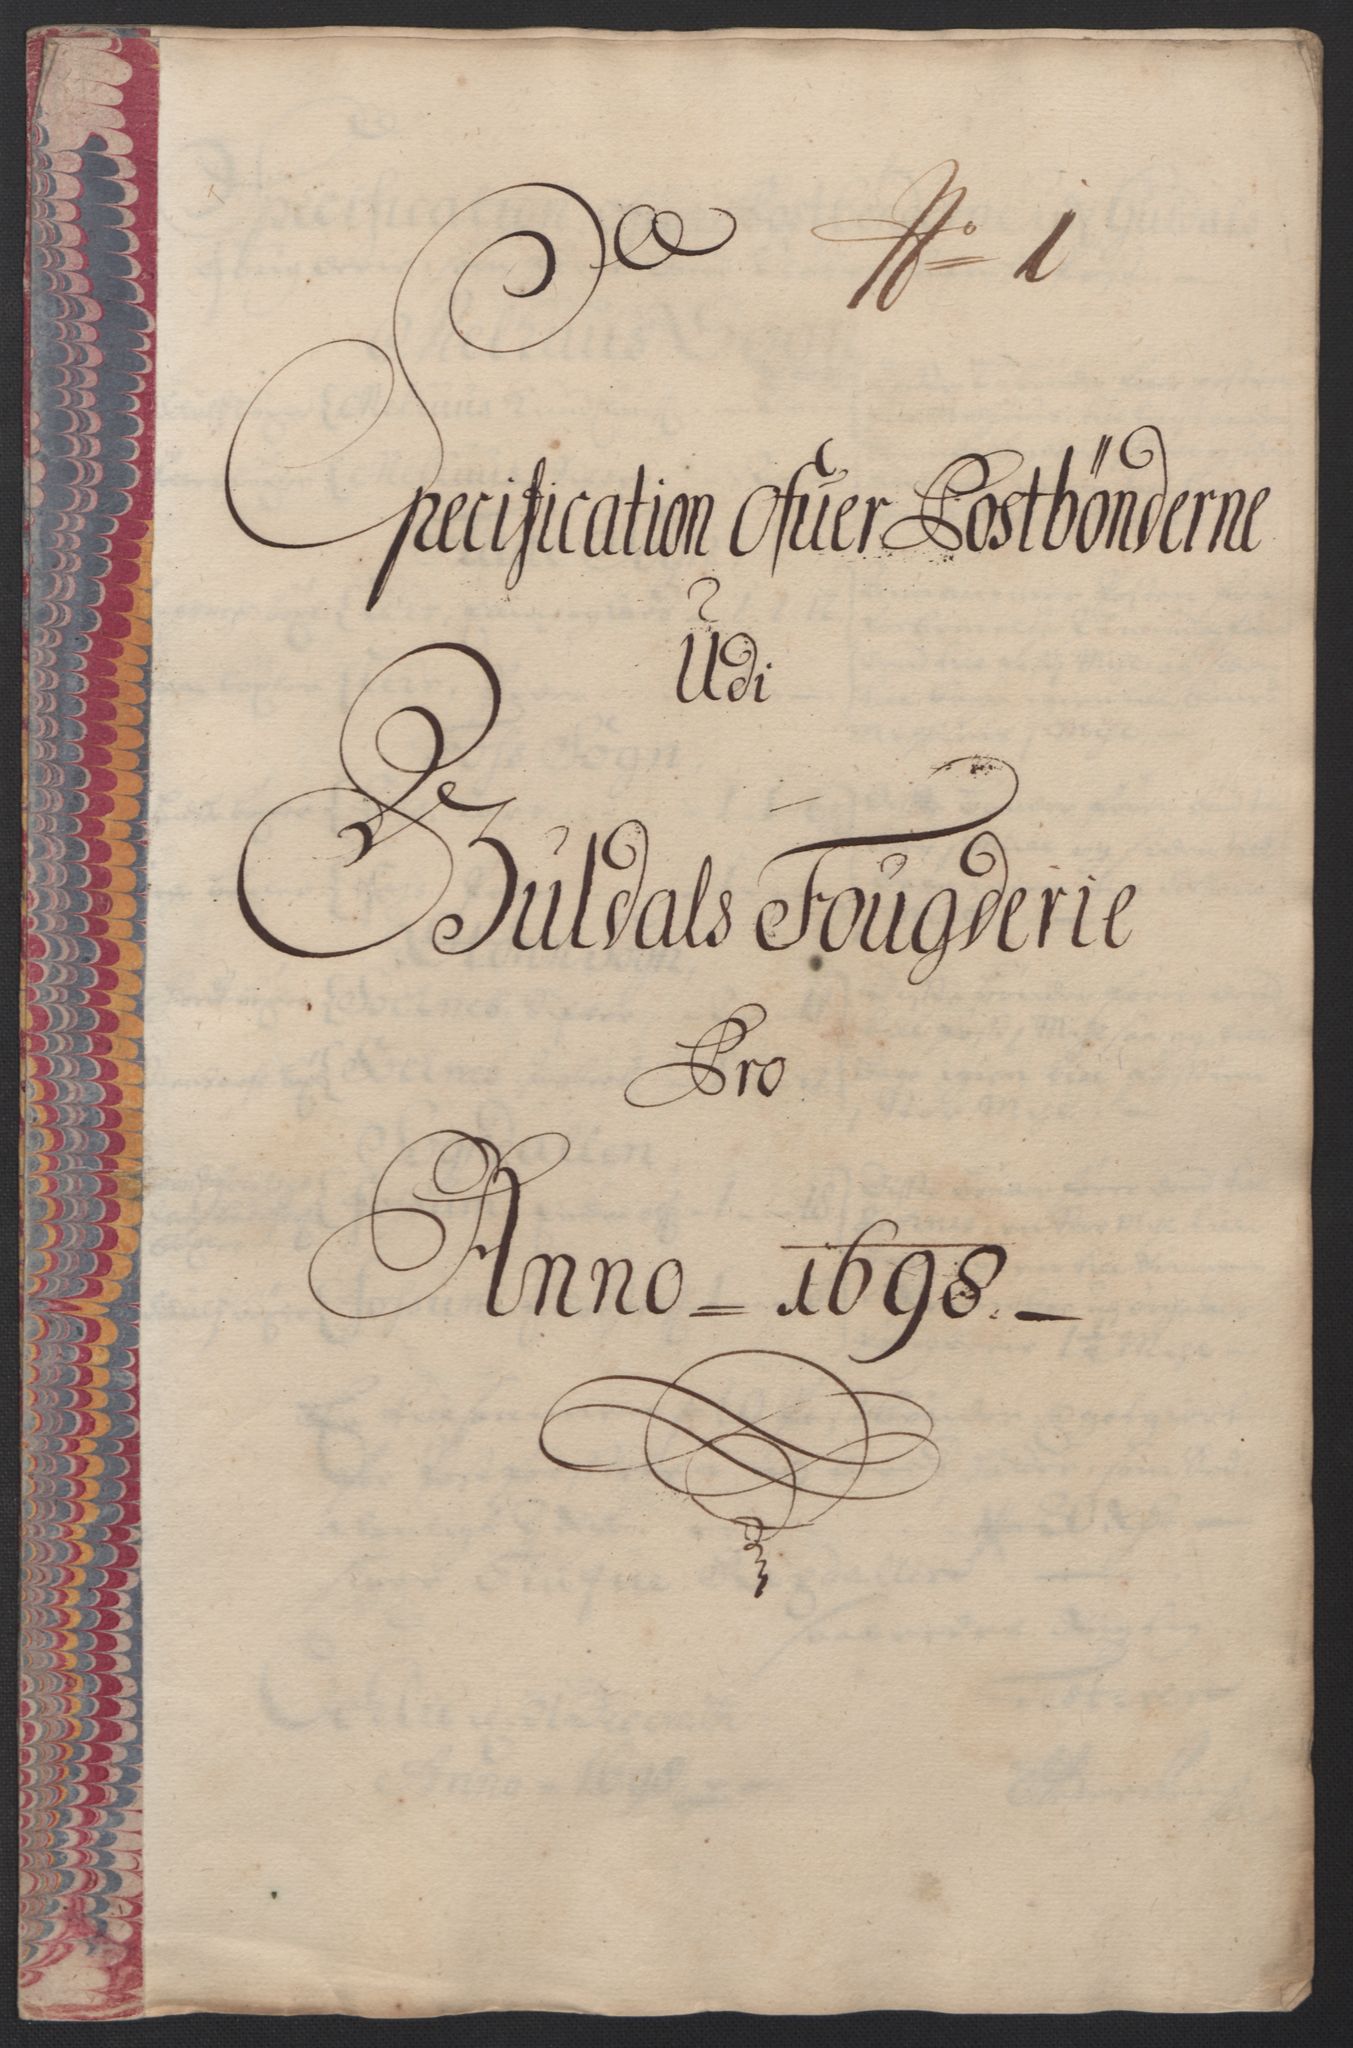 No 1
Specification Ofuer Postbönderne
Udi
Guldals Fougderie
Pro
Anno = 1698.